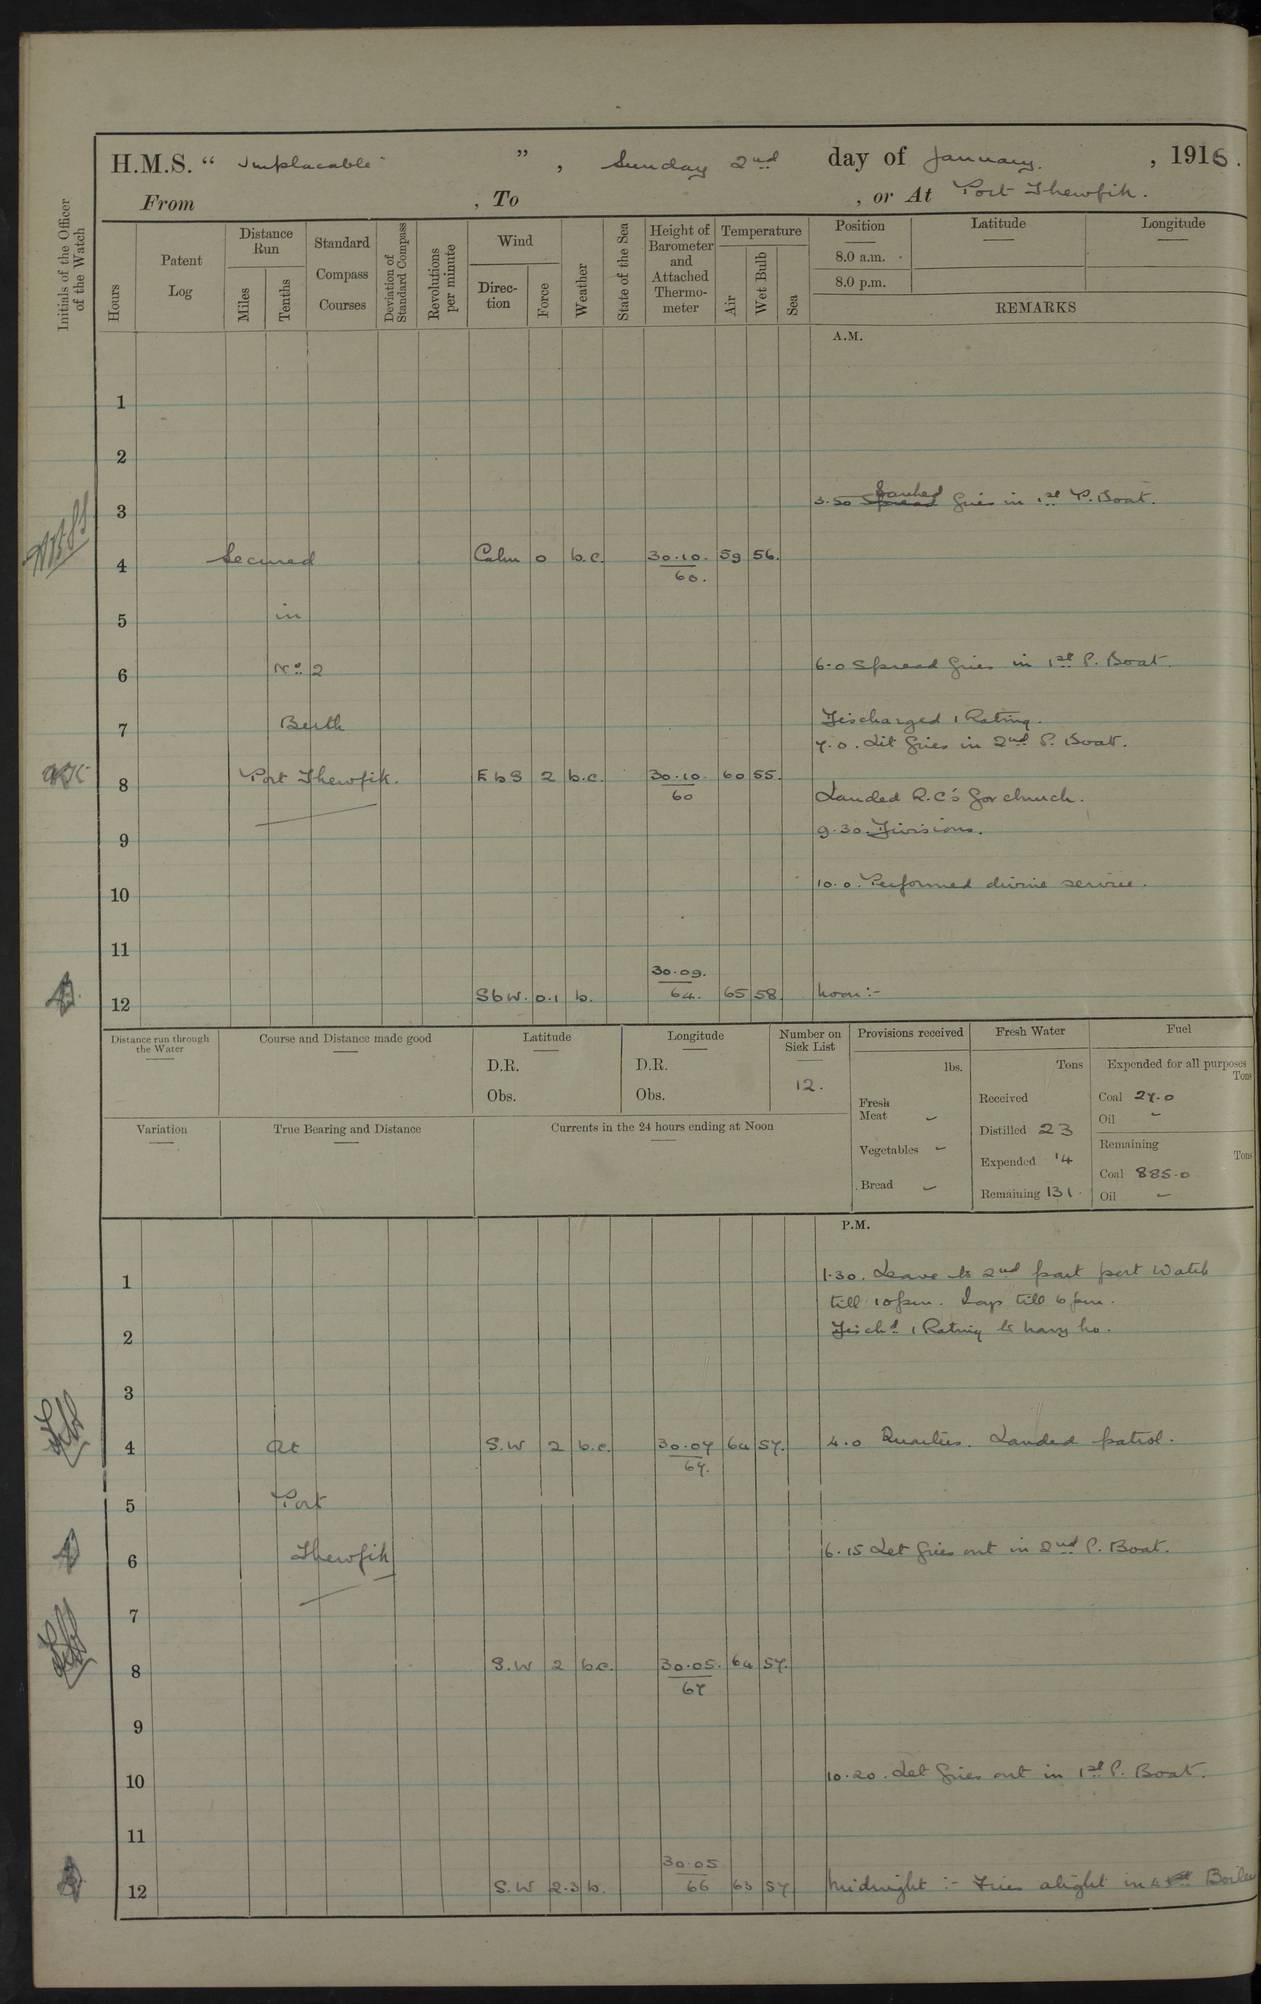 H.M.S. “ Implacable ” , Sunday 2nd day of January. , 1916.
From , To , or At Port Thewfik.
Initials of the Officer of the Watch
Hours
Patent Log
Distance Run
Miles
Tenths
Standard Compass Courses
Deviation of Standard Compass
Revolutions per minute
Wind
Direc-tion
Force
Weather
State of the Sea
Height of Barometer and Attached Thermo-meter
Temperature
Air
Wet Bulb
Sea
Position
Latitude
Longitude
8.0 a.m.
8.0 p.m.
REMARKS
A.M.
1
2
3 3.50 Spread Banked fires in 1st P. Boat.
4 Secured Calm 0 b.c. 30.10. 59 56.
60.
5 in
6 No 2 6.0 Spread fires in 1st P. Boat.
7 Berth Discharged 1 Rating.
7.0. Lit fires in 2nd P. Boat.
8 Port Thewfik. E b S 2 b.c. 30.10. 60 55.
60 Landed R.C's for church.
9 9.30. Divisions.
10 10.0. Performed divine service.
11
30.09.
12 S b W. 0.1 b. 64. 65 58 Noon :-
Distance run through the Water
Course and Distance made good
Latitude
D.R.
Obs.
Longitude
D.R.
Obs.
Number on Sick List
12.
Provisions received
lbs.
Fresh Meat -
Vegetables -
Bread -
Fresh Water
Tons
Received
Distilled 23
Expended 14
Remaining 131.
Fuel
Expended for all purposes
Tons
Coal 27.0
Oil -
Remaining
Tons
Coal 885.0
Oil -
Variation
True Bearing and Distance
Currents in the 24 hours ending at Noon
P.M.
1 1.30. Leave to 2nd part port Watch
till 10 pm. Boys till 6 pm.
2 Disch'd 1 Rating to Navy Ho.
3
4 At S.W 2 b.c. 30.07 64 57. 4.0 Quarters. Landed patrol.
67.
5 Port
6 Thewfik 6.15 Let fires out in 2nd P. Boat.
7
8 S.W 2 b.c. 30.05. 64 57.
67
9
10 10.20. Let fires out in 1st P. Boat.
11
30.05
12 S.W 2.3 b. 66 63 57 Midnight :- Fires alight in 4 Boilers